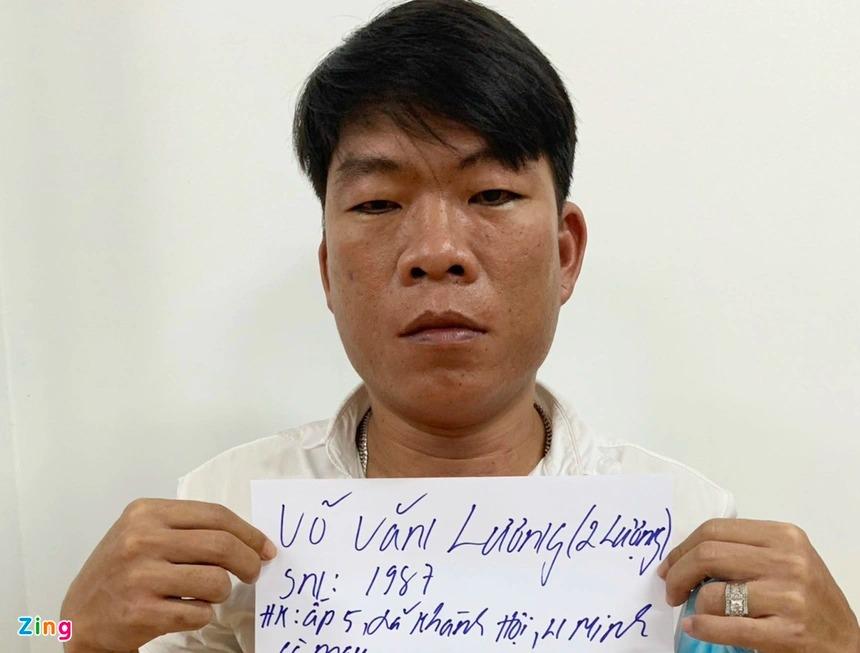 Võ Văn Lương (2 Lượng)
Sn: 1987
HK: ấp 5, xã Khánh Hội, U Minh
Cà Mau
Zing